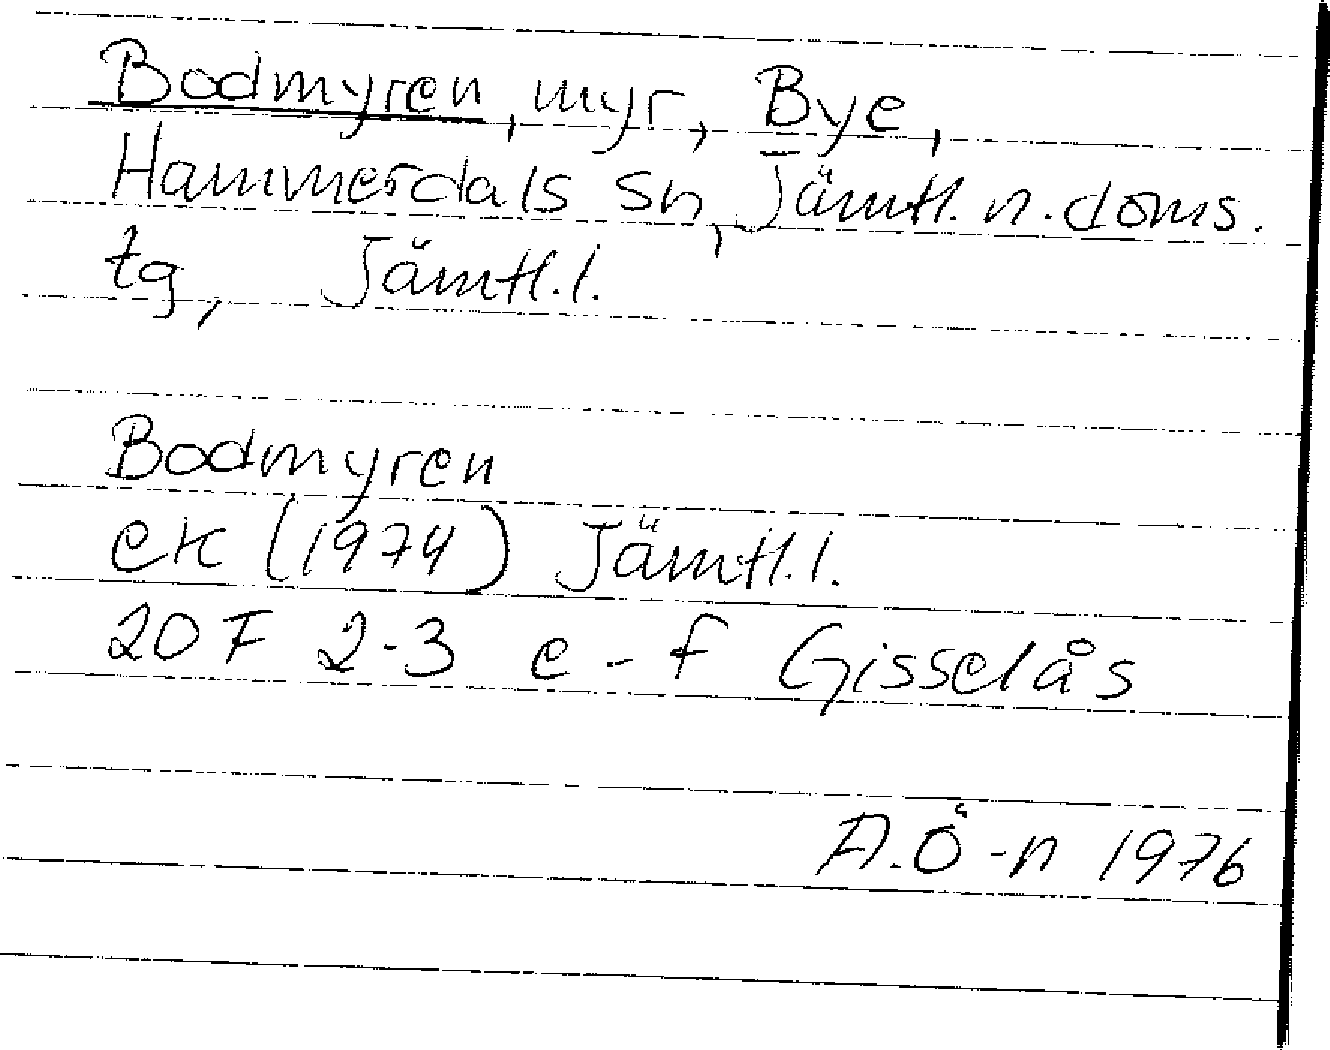 Bodmyren, myr, Bye,
Hammerdals sn, Jämtl. n. doms.
tg, Jämtl.l.
Bodmyren
ek (1974) Jämtl.l.
20F 2-3 e-f Gisselås
A.Ö-n 1976